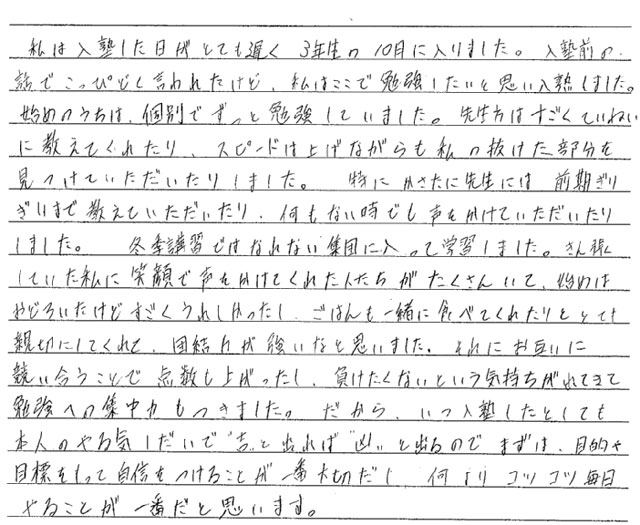 私は入塾した日がとても遅く 3年生の10月に入りました。入塾前の
話でこっぴどく言われたけど、私はここで勉強したいと思い入塾しました。
始めのうちは、個別でずっと勉強していました。先生方はすごくていねい
に教えてくれたり、スピードは上げながらも私の抜けた部分を
見つけていただいたりしました。 特に かさたに先生には 前期ぎり
ぎりまで教えていただいたり、何もない時でも声をかけていただいたり
しました。 冬季講習ではなれない集団に入って学習しました。きん張
していた私に笑顔で声をかけてくれた人たちがたくさんいて、始めは
おどろいたけどすごくうれしかったし、ごはんも一緒に食べてくれたりととても
親切にしてくれて、団結力が強いなと思いました。それにお互いに
競い合うことで点数も上がったし、負けたくないという気持ちがでてきて
勉強への集中力もつきました。だから、いつ入塾したとしても
本人のやる気しだいで"吉"と出れば"凶"と出るので まずは、目的や
目標をもって自信をつけることが一番大切だし、何よりコツコツ毎日
やることが一番だと思います。